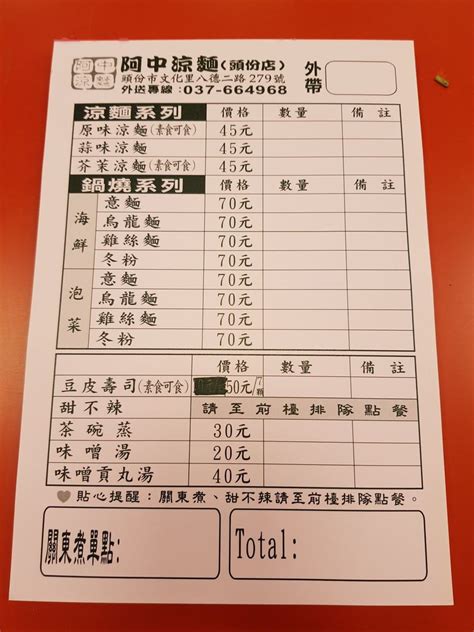 阿中涼麵(頭份店)
頭份市文化里八德二路279號
外送專線:037-664968
外帶
涼麵系列 價格 數量 備註
原味涼麵(素食可食) 45元
蒜味涼麵 45元
芥茉涼麵(素食可食) 45元
鍋燒系列 價格 數量 備註
海鮮
意麵 70元
烏龍麵 70元
雞絲麵 70元
冬粉 70元
泡菜
意麵 70元
烏龍麵 70元
雞絲麵 70元
冬粉 70元
價格 數量 備註
豆皮壽司(素食可食) 50元/7顆
甜不辣 請至前檯排隊點餐
茶碗蒸 30元
味噌湯 20元
味噌貢丸湯 40元
貼心提醒:關東煮、甜不辣請至前檯排隊點餐。
關東煮單點:
Total: